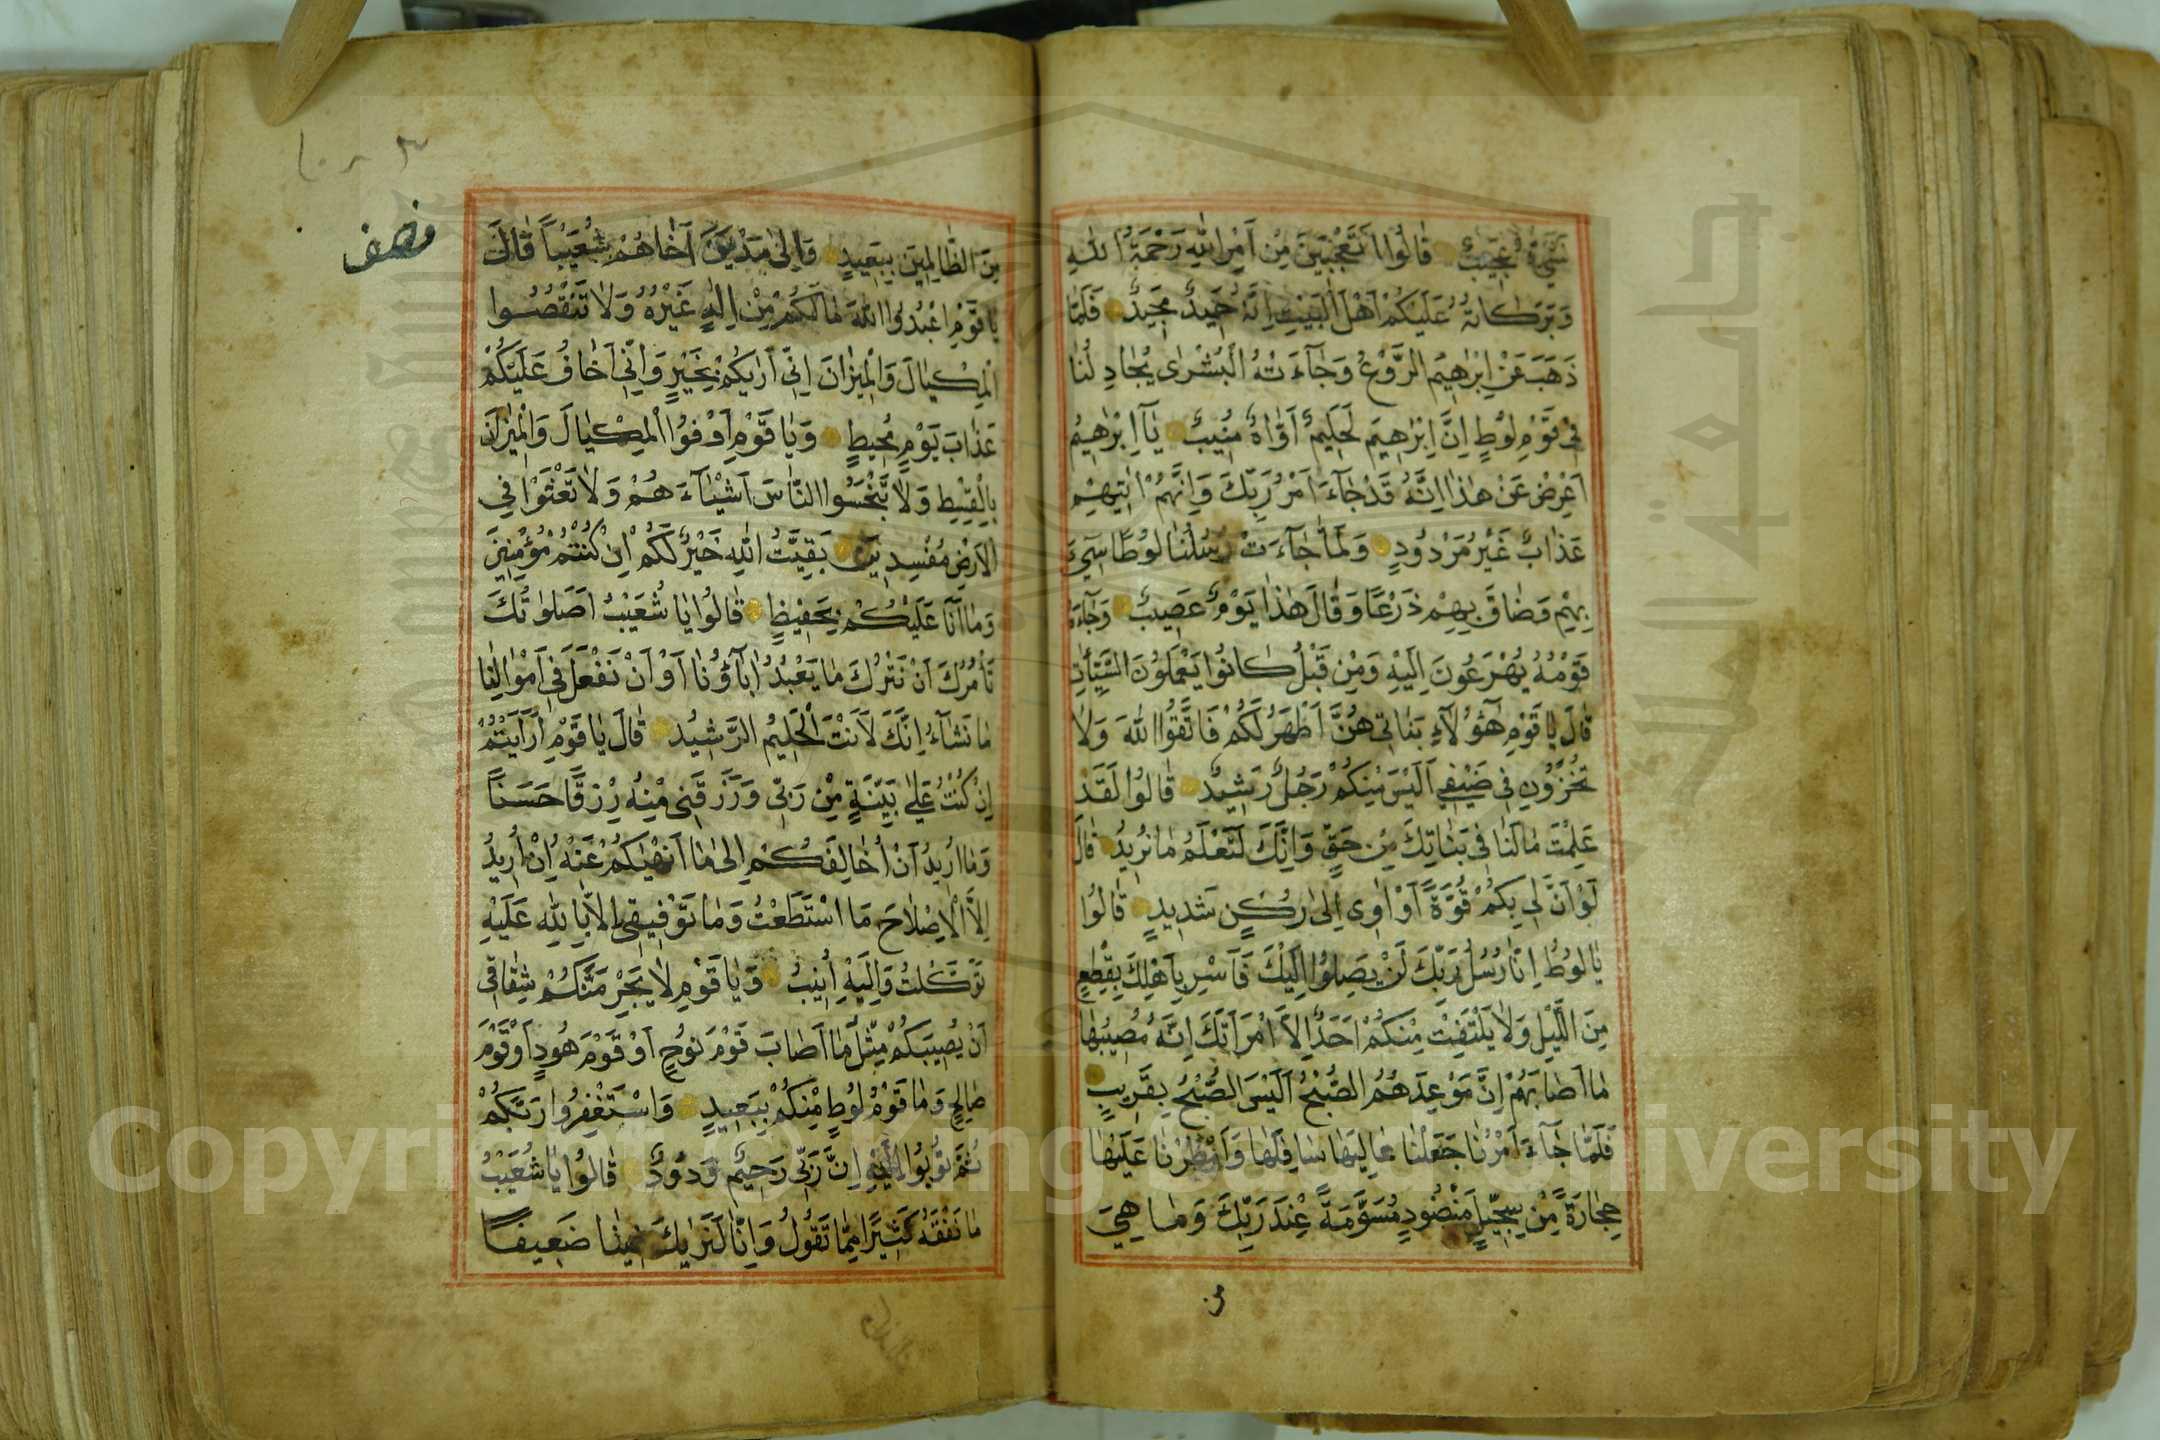 شَيْءٌ عَجِيبٌ قَالُوا أَتَعْجَبِينَ مِنْ أَمْرِ اللهِ رَحْمَةُ اللهِ
وَبَرَكَاتُهُ عَلَيْكُمْ أَهْلَ الْبَيْتِ إِنَّهُ حَمِيدٌ مَجِيدٌ فَلَمَّا
ذَهَبَ عَنْ إِبْرٰهِيمَ الرَّوْعُ وَجَآءَتْهُ الْبُشْرٰى يُجَادِلُنَا
فِي قَوْمِ لُوطٍ إِنَّ إِبْرٰهِيمَ لَحَلِيمٌ أَوَّاهٌ مُنِيبٌ يَآ إِبْرٰهِيمُ
أَعْرِضْ عَنْ هٰذَا إِنَّهُ قَدْ جَآءَ أَمْرُ رَبِّكَ وَإِنَّهُمْ اٰتِيهِمْ
عَذَابٌ غَيْرُ مَرْدُودٍ وَلَمَّا جَآءَتْ رُسُلُنَا لُوطًا سِيٓءَ
بِهِمْ وَضَاقَ بِهِمْ ذَرْعًا وَقَالَ هٰذَا يَوْمٌ عَصِيبٌ وَجَآءَهُ
قَوْمُهُ يُهْرَعُونَ إِلَيْهِ وَمِنْ قَبْلُ كَانُوا يَعْمَلُونَ السَّيِّئَاتِ
قَالَ يَا قَوْمِ هٰٓؤُلَآءِ بَنَاتِي هُنَّ أَطْهَرُ لَكُمْ فَاتَّقُوا اللهَ وَلَا
تُخْزُونِ فِي ضَيْفِي أَلَيْسَ مِنْكُمْ رَجُلٌ رَشِيدٌ قَالُوا لَقَدْ
عَلِمْتَ مَا لَنَا فِي بَنَاتِكَ مِنْ حَقٍّ وَإِنَّكَ لَتَعْلَمُ مَا نُرِيدُ قَالَ
لَوْ أَنَّ لِي بِكُمْ قُوَّةً أَوْ اٰوِي إِلَى رُكْنٍ شَدِيدٍ قَالُوا
يَا لُوطُ إِنَّا رُسُلُ رَبِّكَ لَنْ يَصِلُوا إِلَيْكَ فَأَسْرِ بِأَهْلِكَ بِقِطْعٍ
مِنَ اللَّيْلِ وَلَا يَلْتَفِتْ مِنْكُمْ أَحَدٌ إِلَّا امْرَأَتَكَ إِنَّهُ مُصِيبُهَا
مَا أَصَابَهُمْ إِنَّ مَوْعِدَهُمُ الصُّبْحُ أَلَيْسَ الصُّبْحُ بِقَرِيبٍ
فَلَمَّا جَآءَ أَمْرُنَا جَعَلْنَا عَالِيَهَا سَافِلَهَا وَأَمْطَرْنَا عَلَيْهَا
حِجَارَةً مِنْ سِجِّيلٍ مَنْضُودٍ مُسَوَّمَةً عِنْدَ رَبِّكَ وَمَا هِيَ
من
نصف
مِنَ الظَّالِمِينَ بِبَعِيدٍ وَإِلَى مَدْيَنَ أَخَاهُمْ شُعَيْبًا قَالَ
يَا قَوْمِ اعْبُدُوا اللهَ مَا لَكُمْ مِنْ إِلٰهٍ غَيْرُهُ وَلَا تَنْقُصُوا
الْمِكْيَالَ وَالْمِيزَانَ إِنِّي أَرٰيكُمْ بِخَيْرٍ وَإِنِّي أَخَافُ عَلَيْكُمْ
عَذَابَ يَوْمٍ مُحِيطٍ وَيَا قَوْمِ أَوْفُوا الْمِكْيَالَ وَالْمِيزَانَ
بِالْقِسْطِ وَلَا تَبْخَسُوا النَّاسَ أَشْيَآءَهُمْ وَلَا تَعْثَوْا فِي
الْأَرْضِ مُفْسِدِينَ بَقِيَّتُ اللهِ خَيْرٌ لَكُمْ إِنْ كُنْتُمْ مُؤْمِنِينَ
وَمَا أَنَا عَلَيْكُمْ بِحَفِيظٍ قَالُوا يَا شُعَيْبُ أَصَلٰوتُكَ
تَأْمُرُكَ أَنْ نَتْرُكَ مَا يَعْبُدُ اٰبَآؤُنَا أَوْ أَنْ نَفْعَلَ فِي أَمْوَالِنَا
مَا نَشَآءُ إِنَّكَ لَأَنْتَ الْحَلِيمُ الرَّشِيدُ قَالَ يَا قَوْمِ أَرَأَيْتُمْ
إِنْ كُنْتُ عَلَى بَيِّنَةٍ مِنْ رَبِّي وَرَزَقَنِي مِنْهُ رِزْقًا حَسَنًا
وَمَا أُرِيدُ أَنْ أُخَالِفَكُمْ إِلَى مَا أَنْهٰيكُمْ عَنْهُ إِنْ أُرِيدُ
إِلَّا الْإِصْلَاحَ مَا اسْتَطَعْتُ وَمَا تَوْفِيقِي إِلَّا بِاللهِ عَلَيْهِ
تَوَكَّلْتُ وَإِلَيْهِ أُنِيبُ وَيَا قَوْمِ لَا يَجْرِمَنَّكُمْ شِقَاقِي
أَنْ يُصِيبَكُمْ مِثْلُ مَا أَصَابَ قَوْمَ نُوحٍ أَوْ قَوْمَ هُودٍ أَوْ قَوْمَ
صَالِحٍ وَمَا قَوْمُ لُوطٍ مِنْكُمْ بِبَعِيدٍ وَاسْتَغْفِرُوا رَبَّكُمْ
ثُمَّ تُوبُوا إِلَيْهِ إِنَّ رَبِّي رَحِيمٌ وَدُودٌ قَالُوا يَا شُعَيْبُ
مَا نَفْقَهُ كَثِيرًا مِمَّا تَقُولُ وَإِنَّا لَنَرٰيكَ فِينَا ضَعِيفًا
Copyright © King Saud University